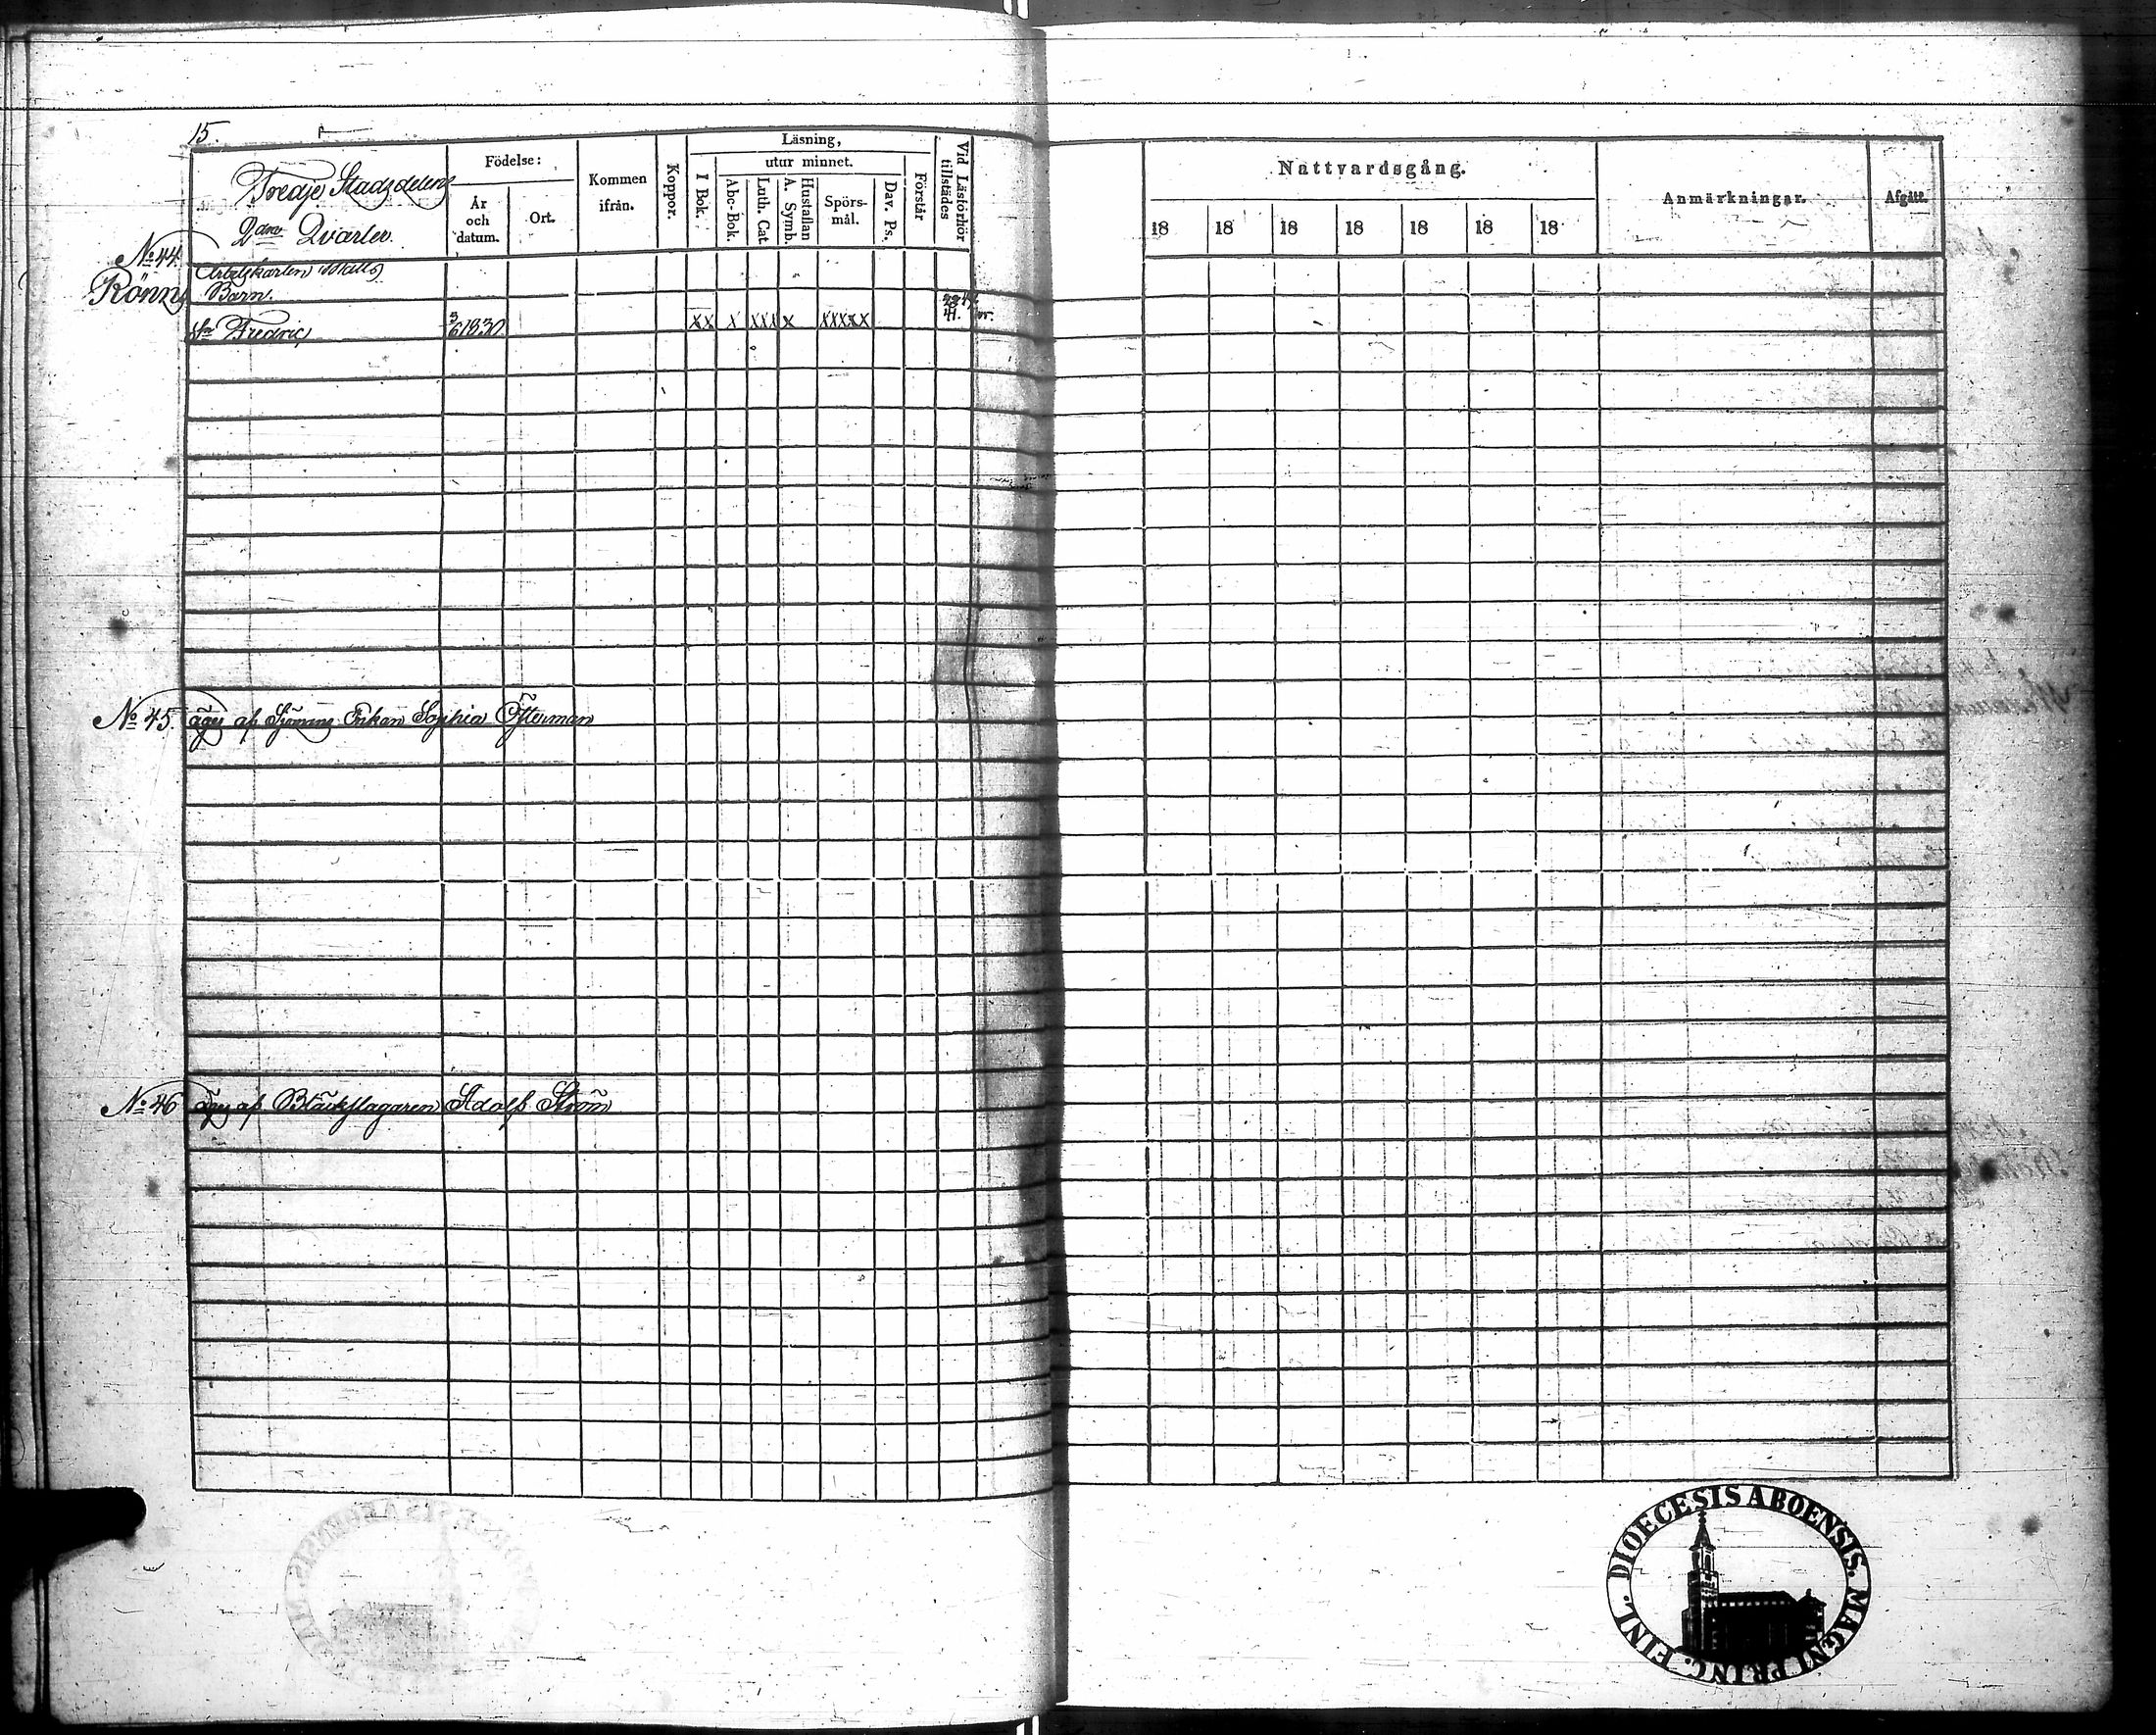 15.
Tredje Stadsdelens
2dra Qvarter.
Födelse:
År
och
datum.
Ort.
Kommen
ifrån.
Koppor.
Läsning,
I Bok.
utur minnet.
Abc-Bok.
Luth. Cat.
A. Symb.
Hustaflan
Spörs-
mål.
Dav. Ps.
Förstår
Vid Läsförhör
tillstädes
Nattvardsgång.
18 18 18 18 18 18 18
Anmärkningar.
Afgått.
No 44.
Rönn
Arbetskarlen Matts
Barn.
Sn Fredric 3/6 1830 xx x xxx x xxxxx
41.
No 45. äges af Sjömans Enkan Sophia Österman
No 46 äges af Bläckslagaren Adolf Ström
DIOECESIS ABOENSIS. MAGNI PRINC. FINL.